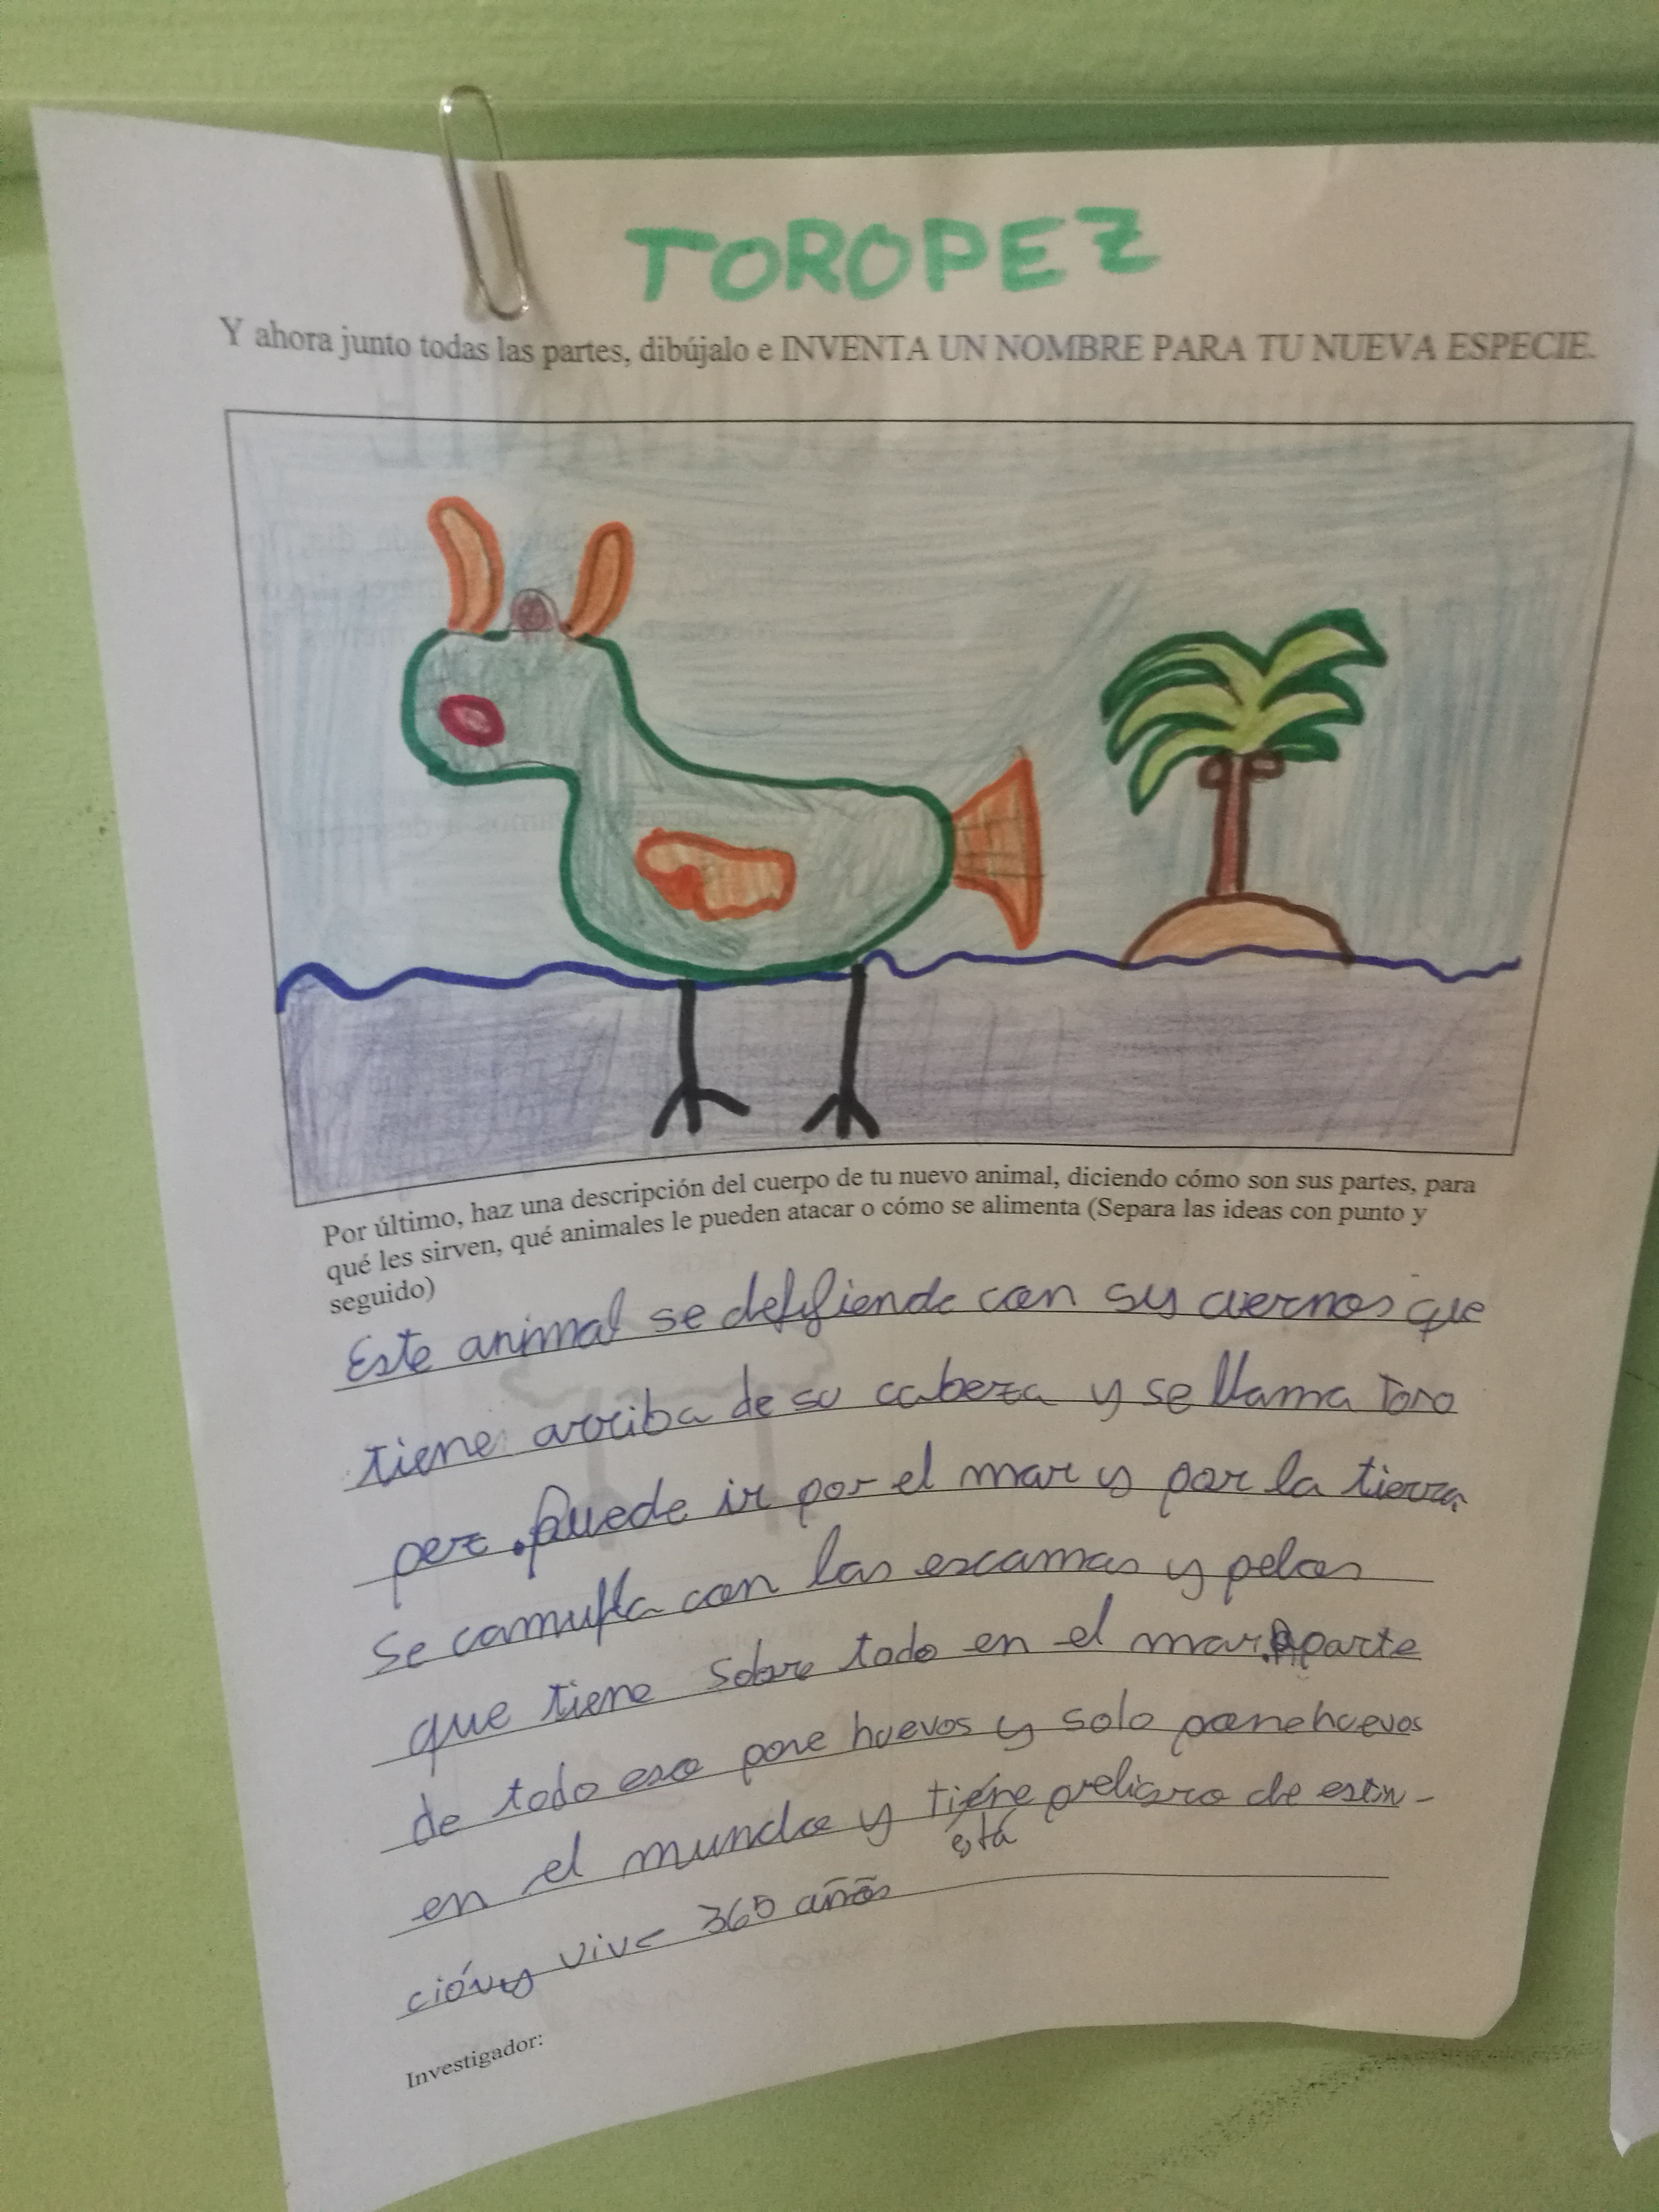 TOROPEZ
Y ahora junto todas las partes, dibújalo e INVENTA UN NOMBRE PARA TU NUEVA ESPECIE.
Por último, haz una descripción del cuerpo de tu nuevo animal, diciendo cómo son sus partes, para
qué les sirven, qué animales le pueden atacar o cómo se alimenta (Separa las ideas con punto y
seguido)
Este animal se defifiende con su cuernos que
tiene arriba de su cabeza y se llama Toro
pez. Puede ir por el mar y por la tierra
se camufla con las escamas y pelos
que tiene sobre todo en el mar. Aparte
de todo eso pone huevos y solo pone huevos
en el mundo y tiene peligro de extin-
está
ción y vive 365 años
Investigador: